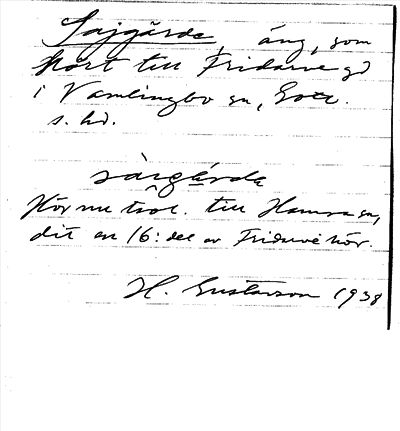 Sajgårda, äng, som
hört till Fridarve gd
i Vamlingbo sn, Gotl.
s. hd.
sàigårda
Hör nu trol. till Hamra sn,
dit en 16:del av Fridarve hör.
H. Gustavson 1938